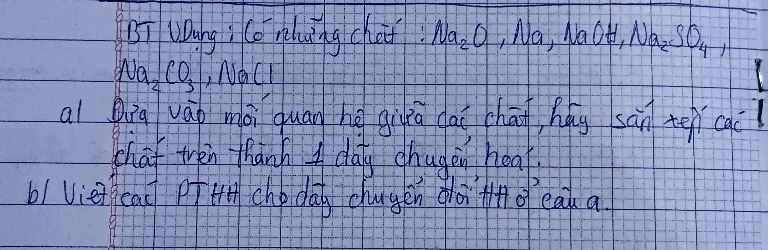 BT VDụng: Có những chất: Na₂O, Na, NaOH, Na₂SO₄,
Na₂CO₃, NaCl
a/ Dựa vào mối quan hệ giữa các chất, hãy sắp xếp các
chất trên thành 1 dãy chuyển hoá.
b/ Viết các PTHH cho dãy chuyển đổi HH ở câu a.